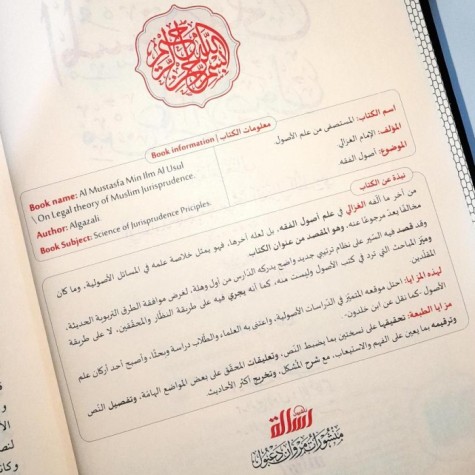 بسم الله الرحمن الرحيم
Book information | معلومات الكتاب
اسم الكتاب: المستصفى من علم الأصول.
المؤلف: الإمام الغزالي
الموضوع: أصول الفقه.
Book name: Al Mustasfa Min Ilm Al Usul
\ On Legal theory of Muslim Jurisprudence.
Author: Algazali.
Book Subject: Science of Jurisprudence Priciples.
نبذة عن الكتاب
من آخر ما ألفه الغزالي في علم أصول الفقه، بل لعله آخرها، فهو يمثل خلاصة علمه في المسائل الأصولية، وما كان
مخالفًا يعدّ مرجوعًا عنه، وهو المقصد من عنوان الكتاب.
وقد قصد فيه السّير على نظام ترتيبي جديد واضح يدركه الدّارس من أوّل وهلة، لغرض موافقة الطرق التربوية الحديثة.
وميّز المباحث التي ترد في كتب الأصول وليست منه، كما أنه يجري فيه على طريقة النظّار والمحققين، لا على طريقة
المقلدين.
لهذه المزايا: احتل موقعه المتميّز في الدّراسات الأصولية، واعتنى به العلماء والطلّاب دراسة وبحثًا، وأصبح أحد أركان علم
الأصول -كما نقل عن ابن خلدون.
مزايا الطبعة: تحقيقها على نسختين بما يضبط النّص، وتعليقات المحقّق على بعض المواضع الهامّة، وتفصيل النّص
وترقيمه بما يعين على الفهم والاستيعاب، مع شرح المُشكل، وتخريج أكثر الأحاديث.
رسالة ناشرون
منشورات مروان دعبول